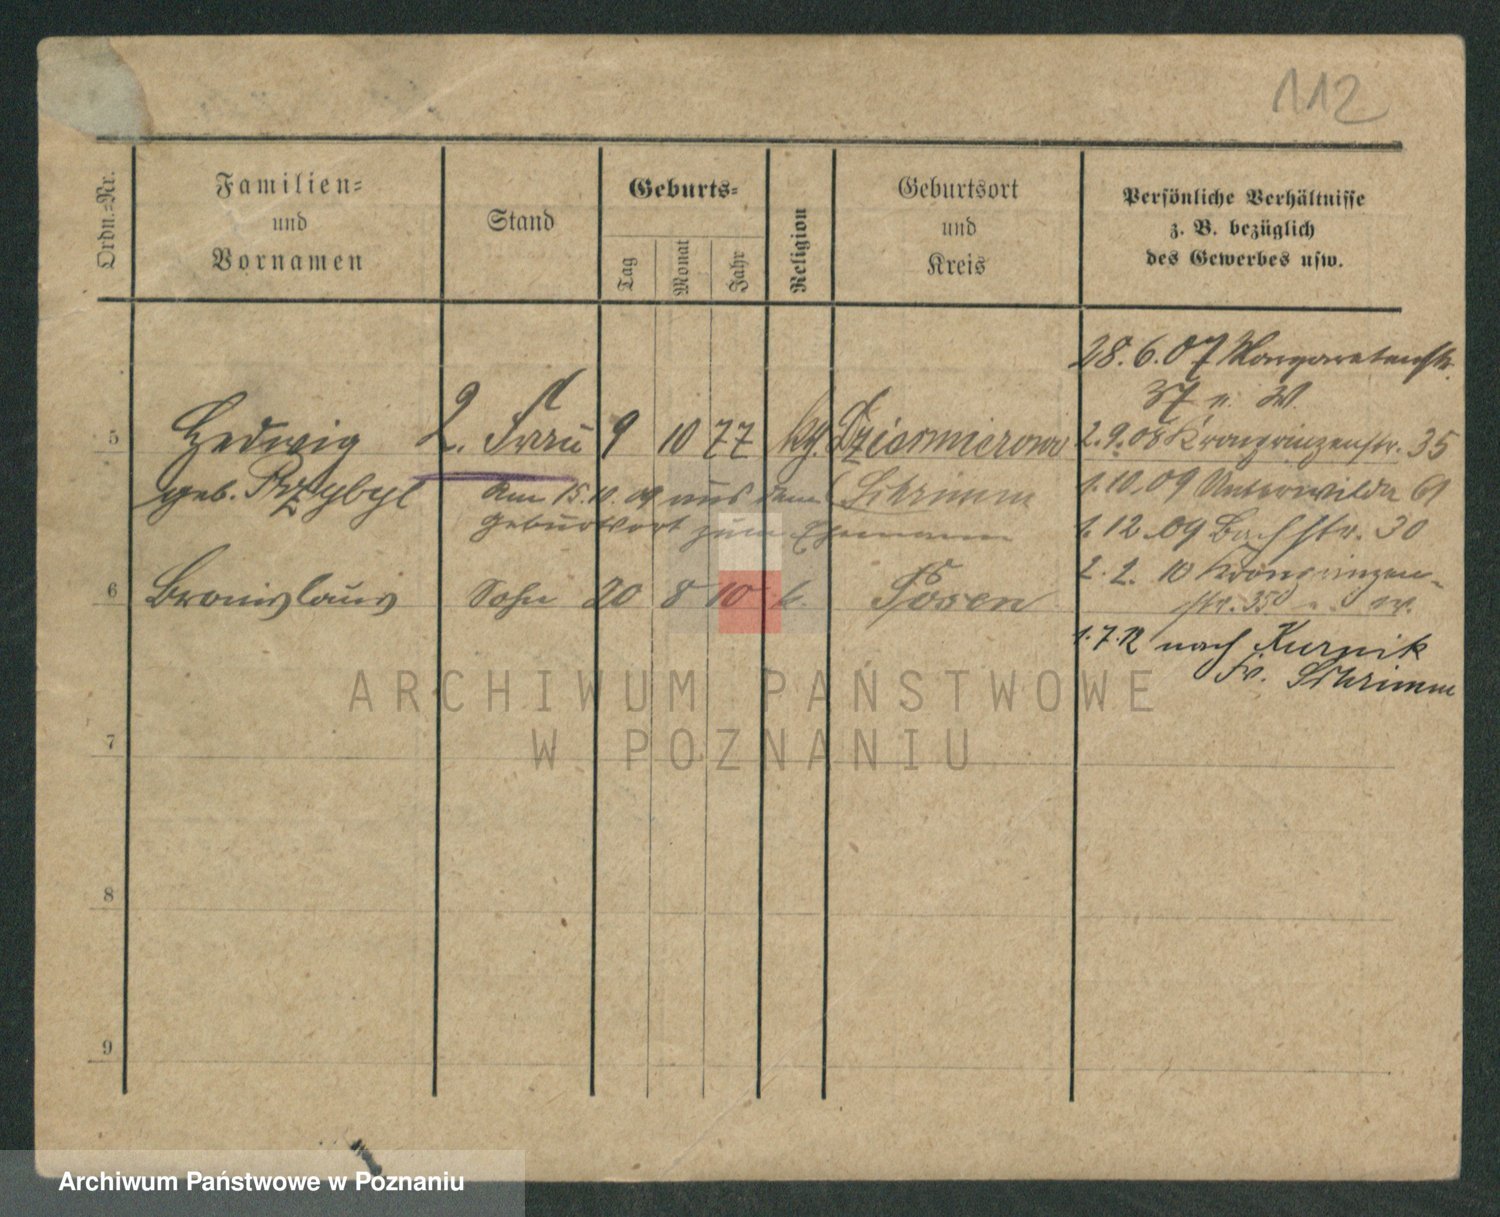 112
Ordn.-Nr.
Familien-
und
Vornamen
Stand
Geburts-
Tag
Monat
Jahr
Religion
Geburtsort
und
Kreis
Persönliche Verhältnisse
z. B. bezüglich
des Gewerbes usw.
28.6.07 Margaretenstr.
37 n. W.
5 Hedwig 2. Frau 9 10 77 kg. Dziesmierowo 2.9.08 Kronprinzenstr. 35
geb. Przybyl am 15.10.09 aus dem Schrimm 1.10.09 Unterwilda 61
Geburtsort zum Ehemann 1.12.09 Bachstr. 30
6 Bronislaus Sohn 20 8 10 k. Posen 2.2.10 Kronprinzen-
str. 35
1.7.12 nach Kurnik
Kr. Schrimm
7
8
9
ARCHIWUM PAŃSTWOWE
W POZNANIU
Archiwum Państwowe w Poznaniu